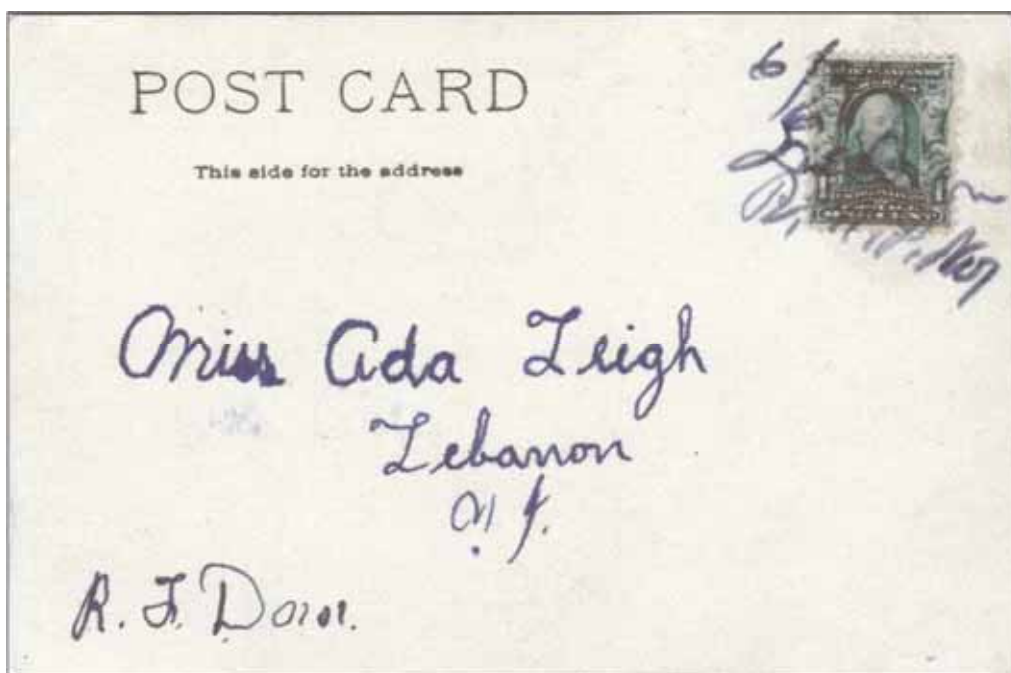 POST CARD
This side for the address
Miss Ada Leigh
Lebanon
N. J.
R. F. D.